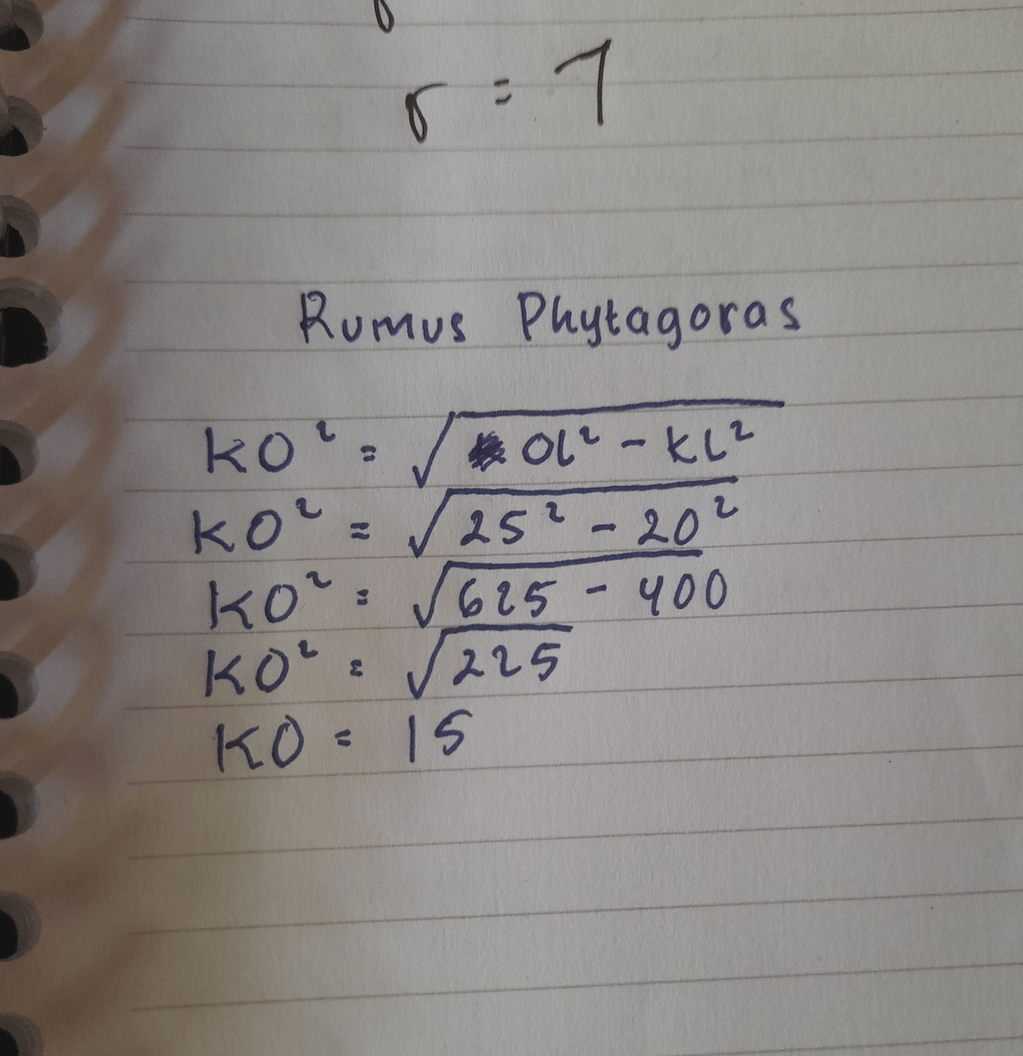 r = 7
Rumus Phytagoras
KO² = √OL² - KL²
KO² = √25² - 20²
KO² = √625 - 400
KO² = √225
KO = 15